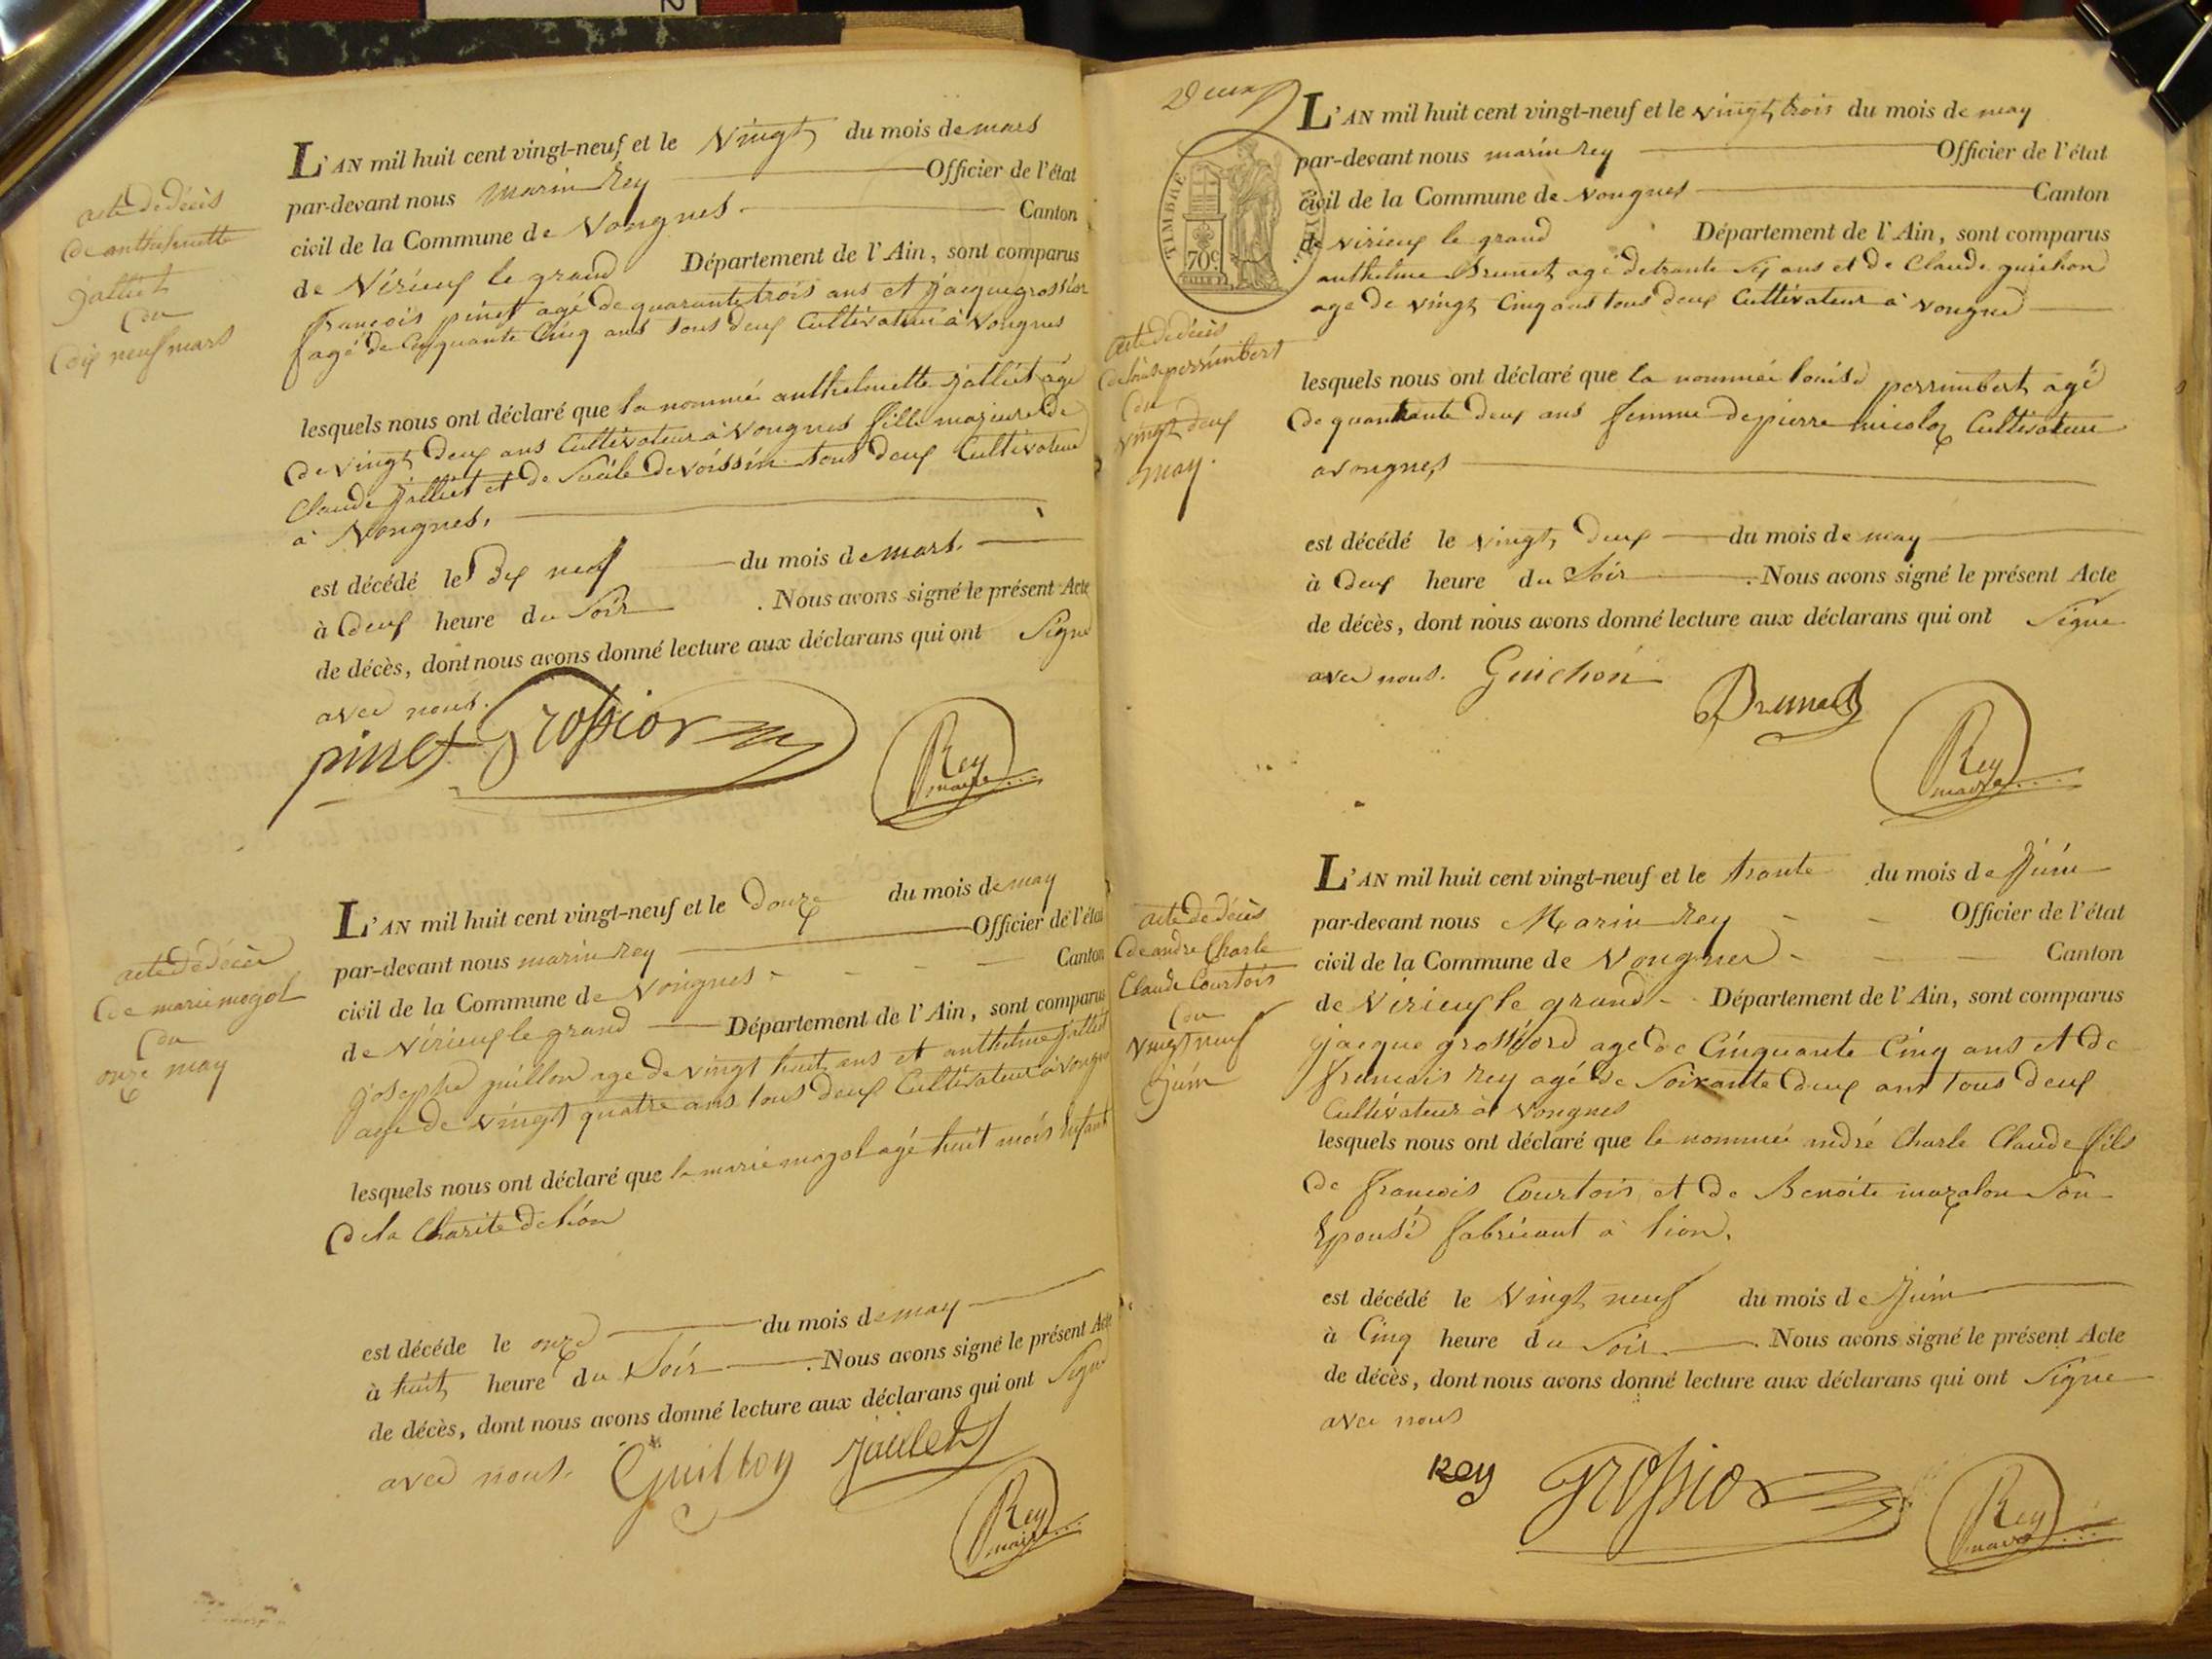 acte de décès
de anthelmette
jalliet
du
dix neuf mars
L'AN mil huit cent vingt-neuf et le vingt du mois de mars
par-devant nous marin Rey Officier de l'état
civil de la Commune de Vongnes. Canton
de Virieux le grand Département de l'Ain, sont comparus
francois pinet agé de quarante trois ans et jacque grossior
agé de Cinquante Cinq ans tous deux Cultivateur à Vongnes
lesquels nous ont déclaré que la nommé anthelmette jalliet agé
de vingt deux ans Cultivateur à Vongnes fille majeure de
Claude jalliet et de de voissin tous deux Cultivateur
à Vongnes.
est décédé le dix neuf du mois de mars.
à deux heure du Soir . Nous avons signé le présent Acte
de décès, dont nous avons donné lecture aux déclarans qui ont Signé
avec nous.
pinet Grossior Rey
maire
acte de décès
de marie mogol
du
onze may
L'AN mil huit cent vingt-neuf et le douze du mois de may
par-devant nous marin Rey Officier de l'état
civil de la Commune de Vongnes Canton
de Virieux le grand Département de l'Ain, sont comparus
josephe guillon age de vingt huit ans et anthelme jalliet
age de vingt quatre ans tous deux Cultivateur à Vongnes
lesquels nous ont déclaré que la marie mogol agé huit mois enfant
de la Charite de lion
est décédé le onze du mois de may
à huit heure du Soir . Nous avons signé le présent Acte
de décès, dont nous avons donné lecture aux déclarans qui ont Signé
avec nous. Guillon
Rey
maire
TIMBRE ROYAL
70c
L'AN mil huit cent vingt-neuf et le vingt trois du mois de may
par-devant nous marin Rey Officier de l'état
civil de la Commune de Vongnes Canton
de Virieux le grand Département de l'Ain, sont comparus
anthelme Brunet agé de trante six ans et de Claude guichon
age de vingt Cinq ans tous deux Cultivateur à Vongnes
acte de décès
de louise perrimbert
du
vingt deux
may.
lesquels nous ont déclaré que la nommée louise perrimbert agé
de quarante deux ans femme de pierre nicoloz Cultivateur
a vongnes
est décédé le vingt deux du mois de may
à deux heure du Soir . Nous avons signé le présent Acte
de décès, dont nous avons donné lecture aux déclarans qui ont Signé
avec nous. Guichon Brunet
Rey
maire
acte de décès
de andre Charle
Claude Courtois
du
vingt neuf
juin
L'AN mil huit cent vingt-neuf et le trante du mois de Juin
par-devant nous Marin Rey Officier de l'état
civil de la Commune de Vongnes Canton
de Virieux le grand Département de l'Ain, sont comparus
jacque grossiord agé de Cinquante Cinq ans et de
francois Rey agé de Soixante deux ans tous deux
Cultivateur à Vongnes
lesquels nous ont déclaré que le nommée andré Charle Claude fils
de francois Courtois et de Benoite mazalon Son
Epouse fabricant à lion.
est décédé le Vingt neuf du mois de Juin
à Cinq heure du Soir. . Nous avons signé le présent Acte
de décès, dont nous avons donné lecture aux déclarans qui ont Signé
avec nous
Rey Grossior Rey
maire